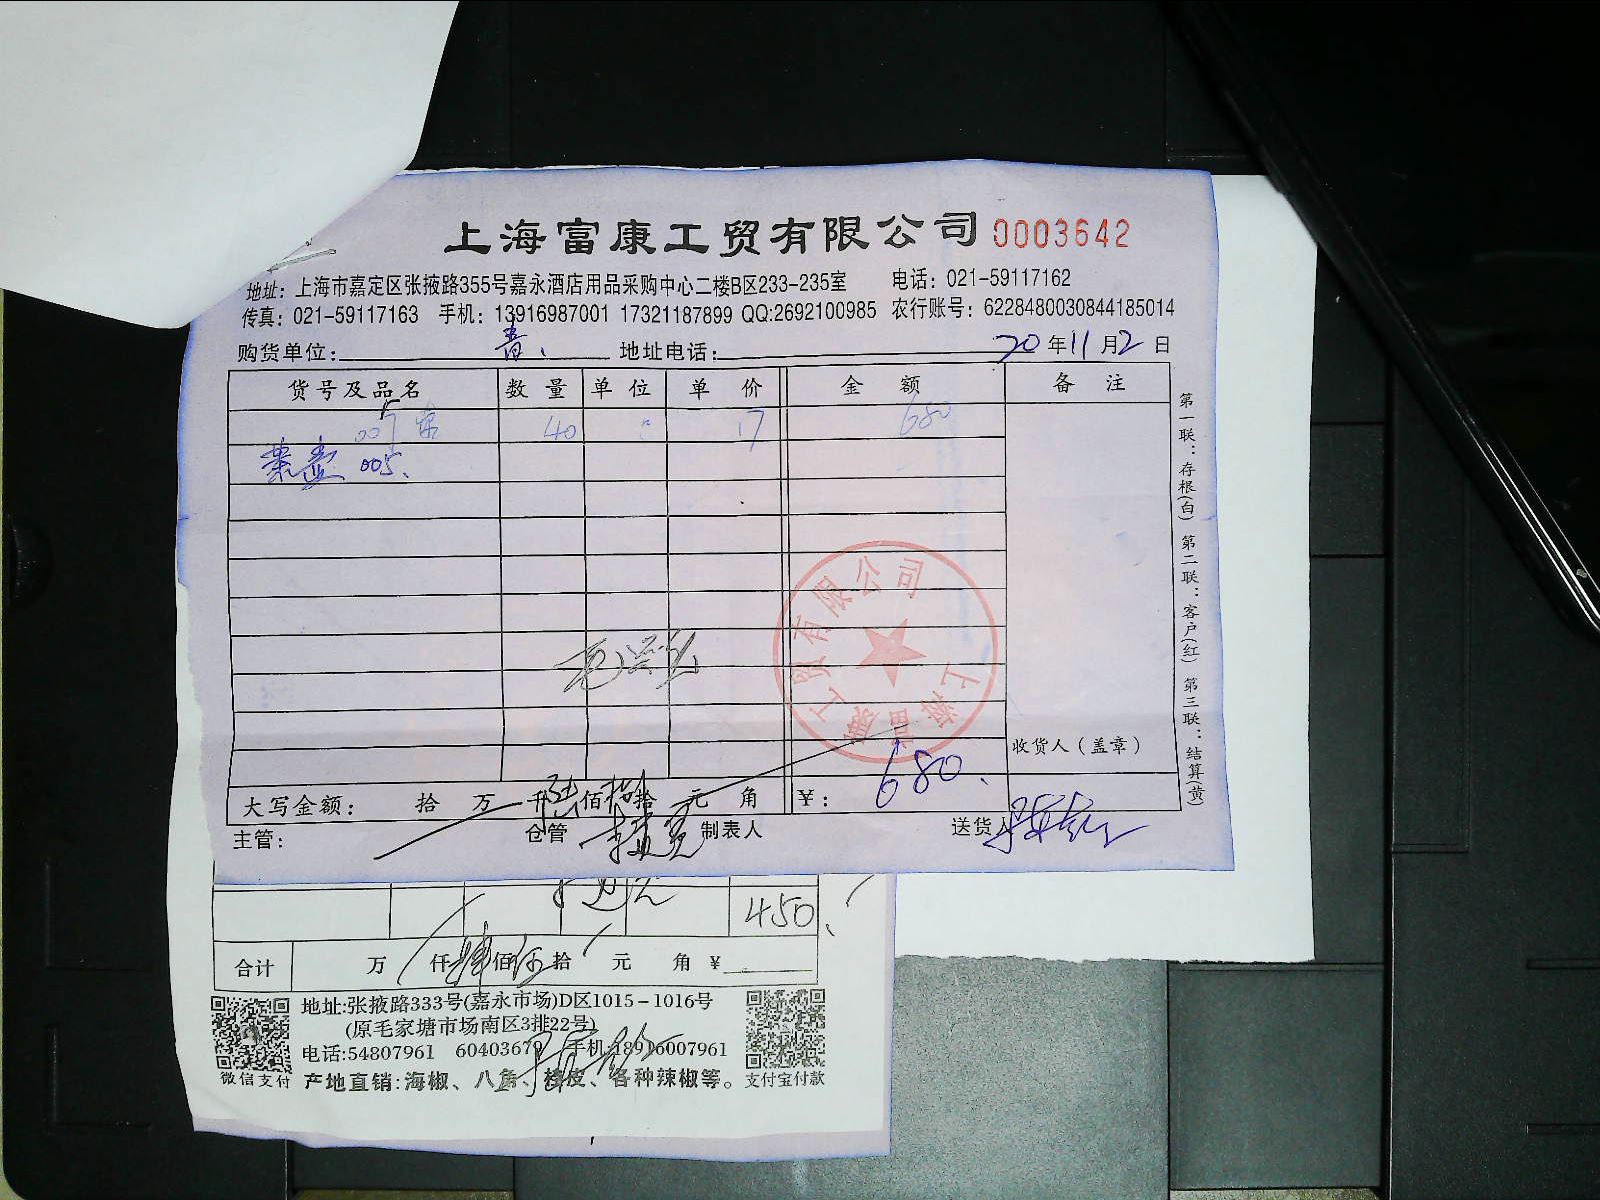 上海富康工贸有限公司 0003642
地址：上海市嘉定区张掖路355号嘉永酒店用品采购中心二楼B区233-235室 电话：021-59117162
传真：021-59117163 手机：13916987001 17321187899 QQ:2692100985 农行账号：6228480030844185014
购货单位： 青、 地址电话： 20年11月2日
货号及品名 数量 单位 单价 金额 备注
007 40 17 680
茶壶 005、
上海富康工贸有限公司
收货人（盖章）
大写金额： 拾 万 仟 陆 佰 捌 拾 元 角 ￥： 680、
主管： 仓管 制表人 送货人
第一联：存根(白) 第二联：客户(红) 第三联：结算(黄)
450、
合计 万 仟 肆 佰 伍 拾 元 角 ￥
地址:张掖路333号(嘉永市场)D区1015-1016号
(原毛家塘市场南区3排22号)
电话:54807961 60403679 手机:18916007961
微信支付 产地直销:海椒、八角、桂皮、各种辣椒等。 支付宝付款